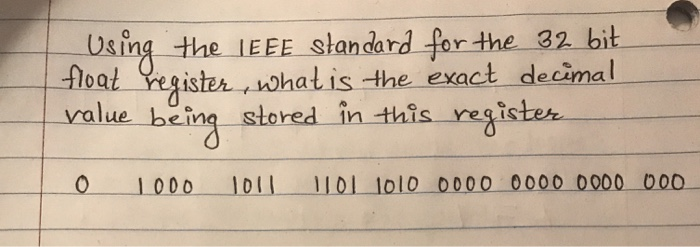 Using the IEEE standard for the 32 bit
float register, what is the exact decimal
value being stored in this register
0 1000 1011 1101 1010 0000 0000 0000 000